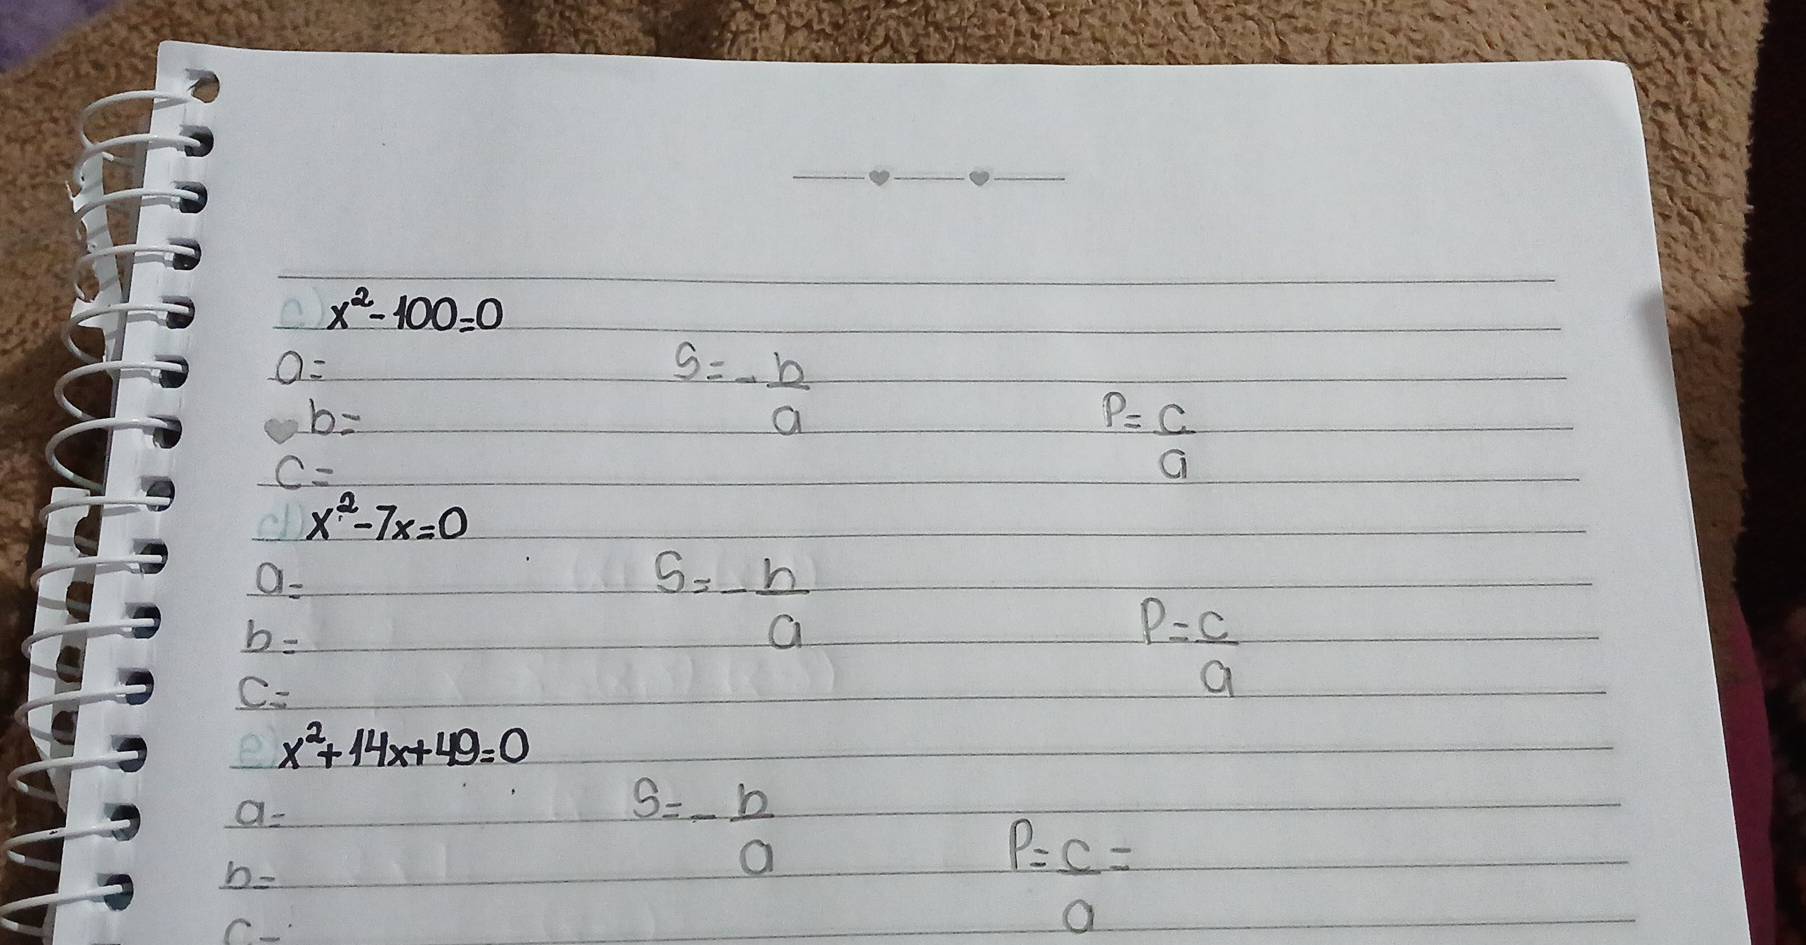 c) x²-100=0
a= S=-b/a
b= P=c/a
c=
d) x²-7x=0
a= S=-b/a
b= P=c/a
c=
e) x²+14x+49=0
a= S=-b/a
b= P=c/a=
c=